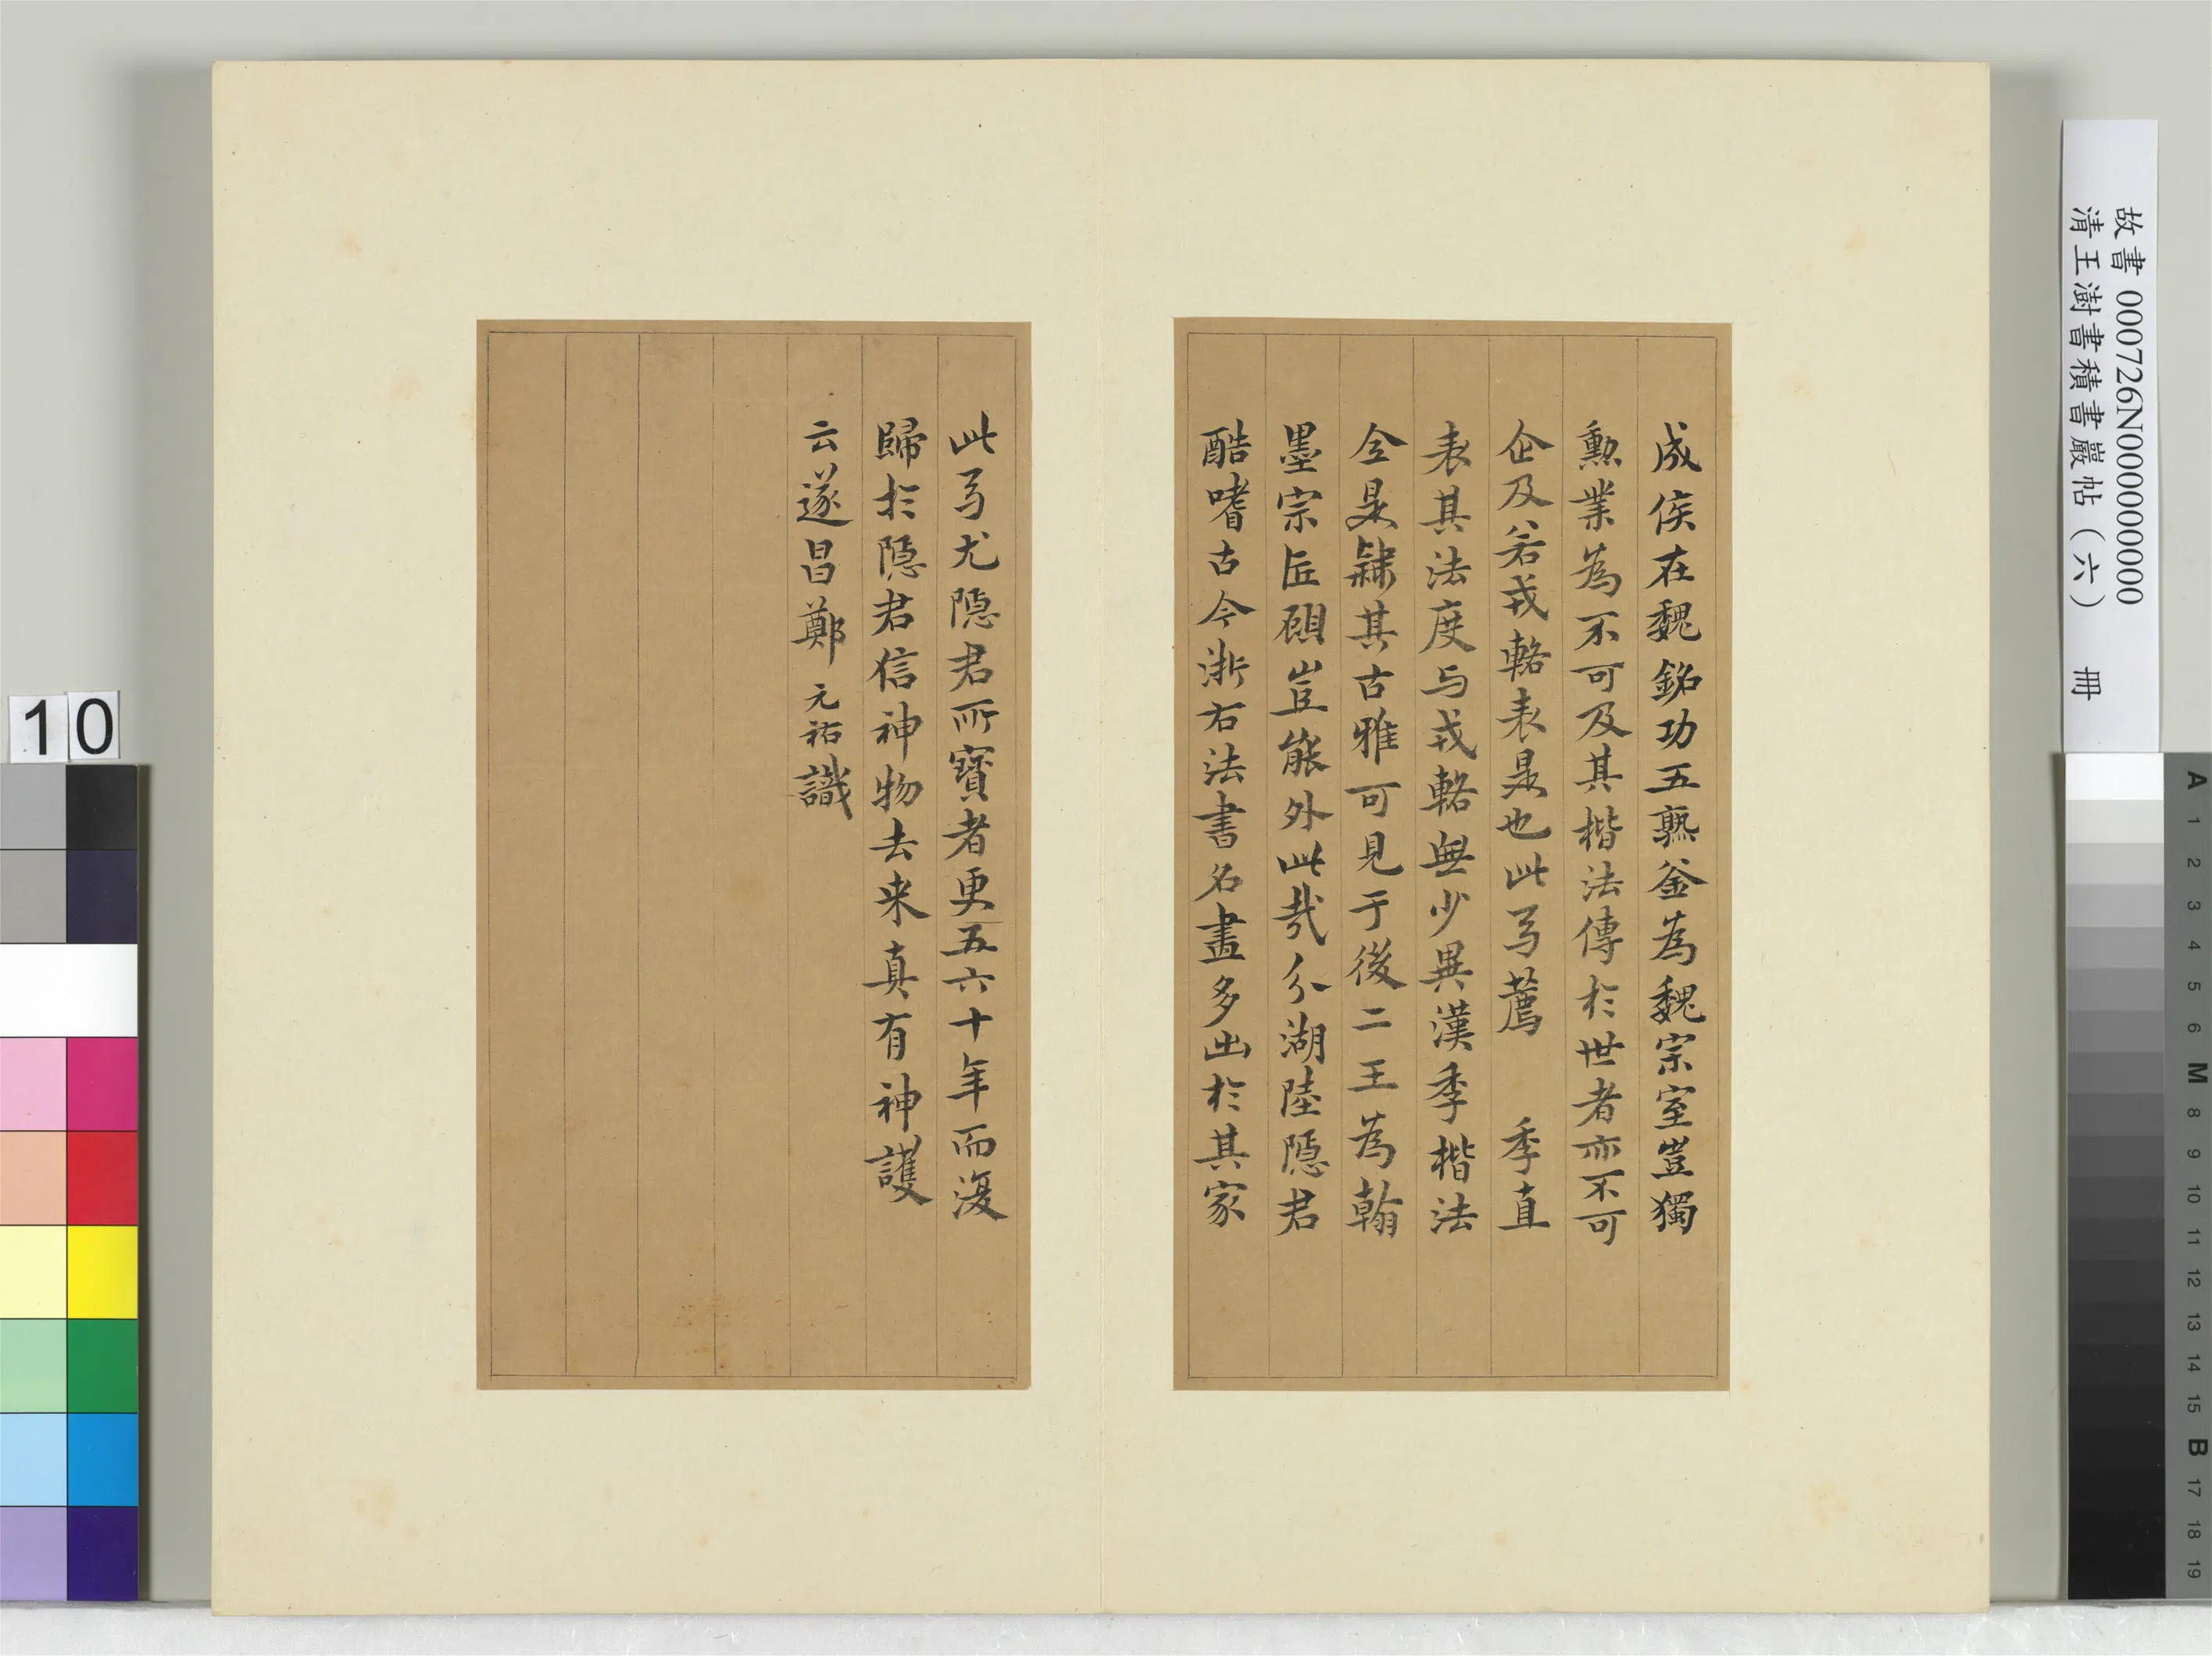 成侯在魏銘功五熟釜為魏宗室豈獨
勲業為不可及其楷法傳於世者亦不可
企及若戎輅表是也此与薦 季直
表其法度与戎輅無少異漢季楷法
全是隷其古雅可見于後二王為翰
墨宗匠顧豈能外此哉分湖陸隱君
酷嗜古今浙右法書名畫多出於其家
此与尤隱君所寶者更五六十年而復
歸於隱君信神物去来真有神護
云遂昌鄭元祐識
故書 000726N000000000
清王澍書積書巖帖（六） 冊
10
A 1 2 3 4 5 6 M 8 9 10 11 12 13 14 15 B 17 18 19